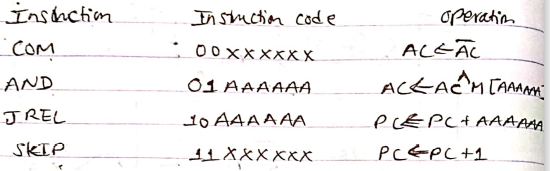 Instruction Instruction code Operation
COM : 00XXXXXX AC←A̅C̅
AND 01AAAAAA AC←AC^M[AAAAAA]
JREL 10AAAAAA PC←PC+AAAAAA
SKIP 11XXXXXX PC←PC+1